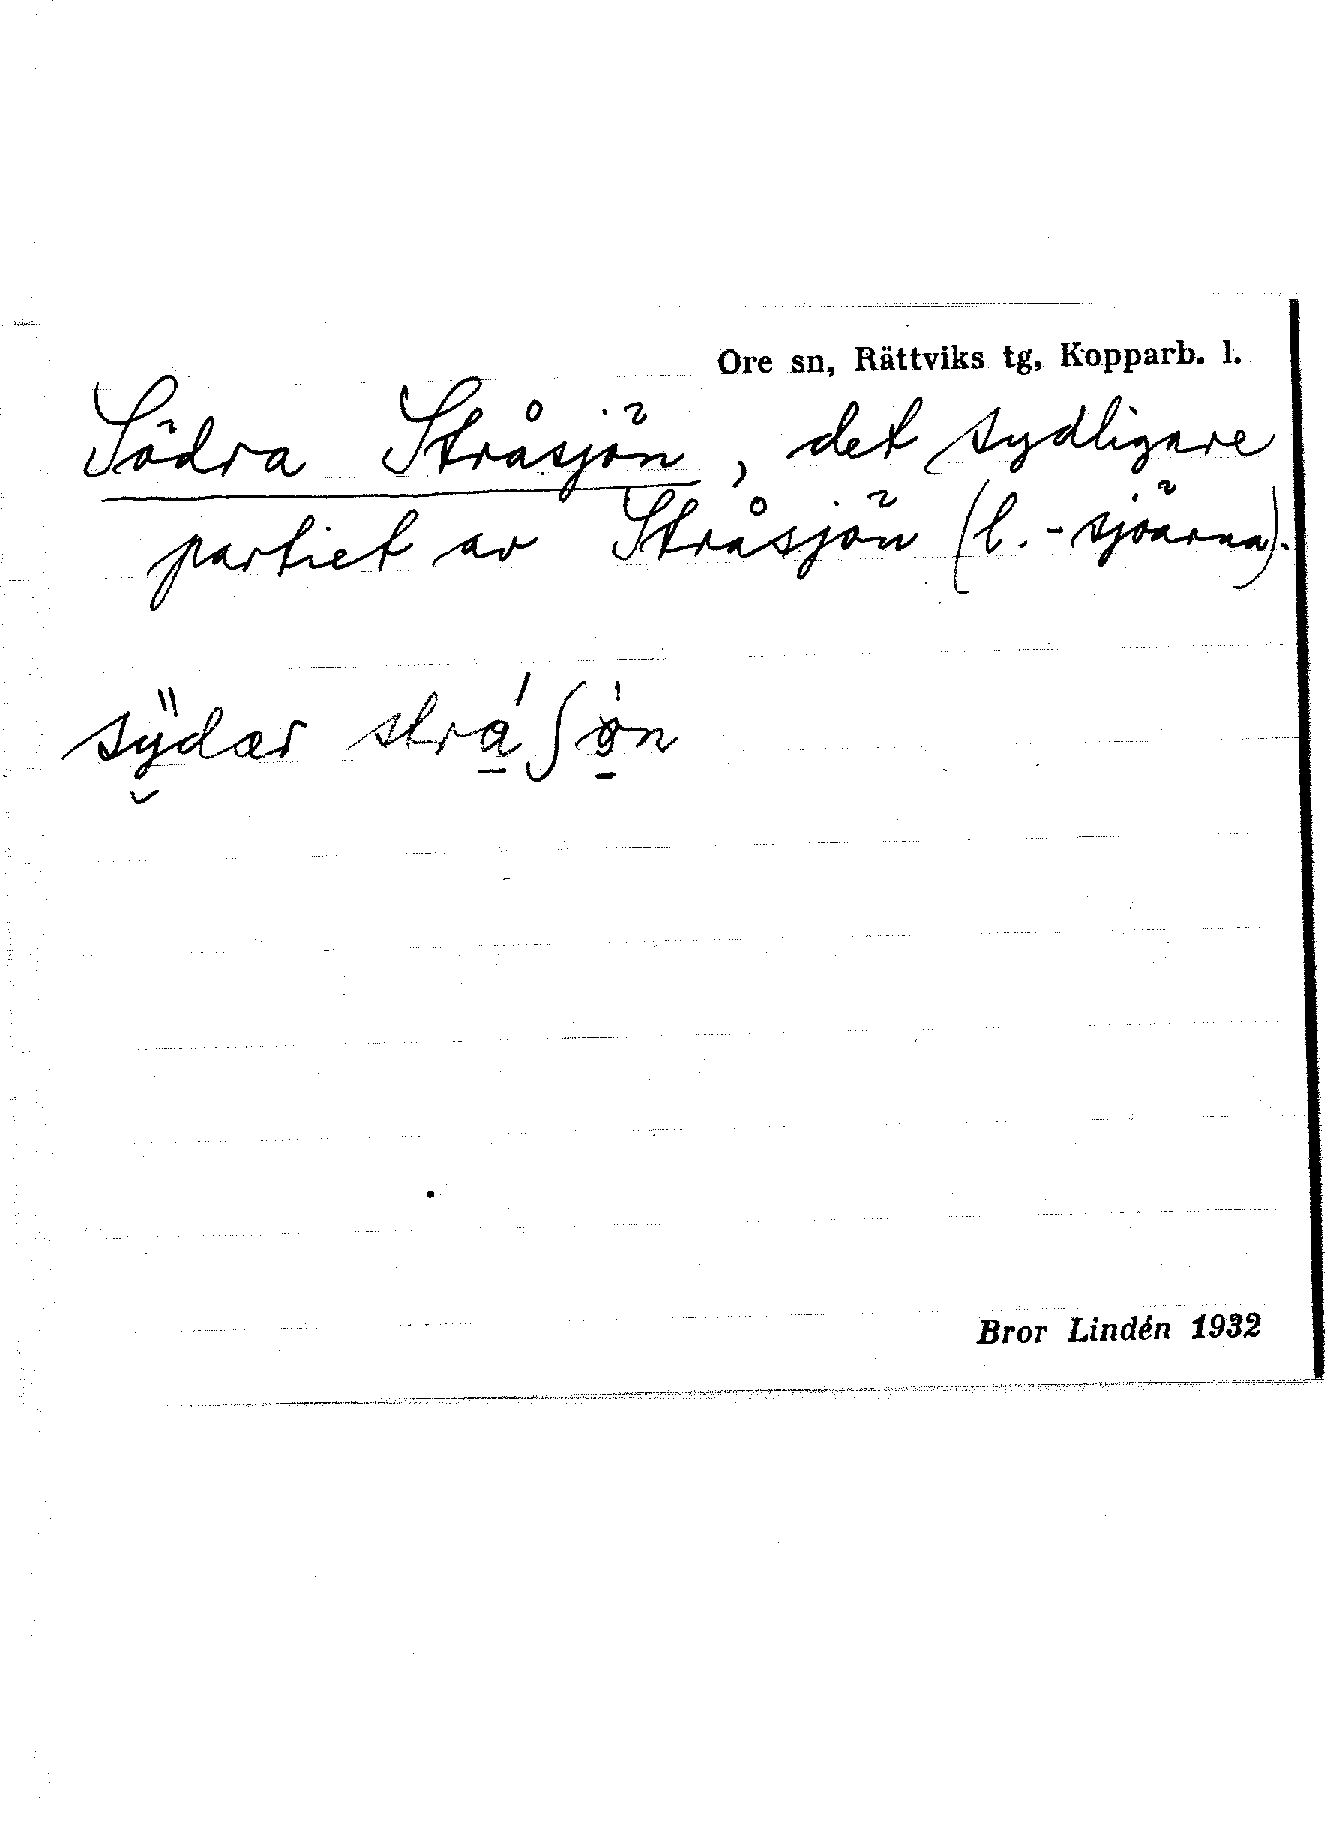 Ore sn, Rättviks tg, Kopparb. l.
Södra Stråsjön, det sydligare
partiet av Stråsjön (l. -sjöarna).
sÿdær strá̱ʃø̱̀n
Bror Lindén 1932